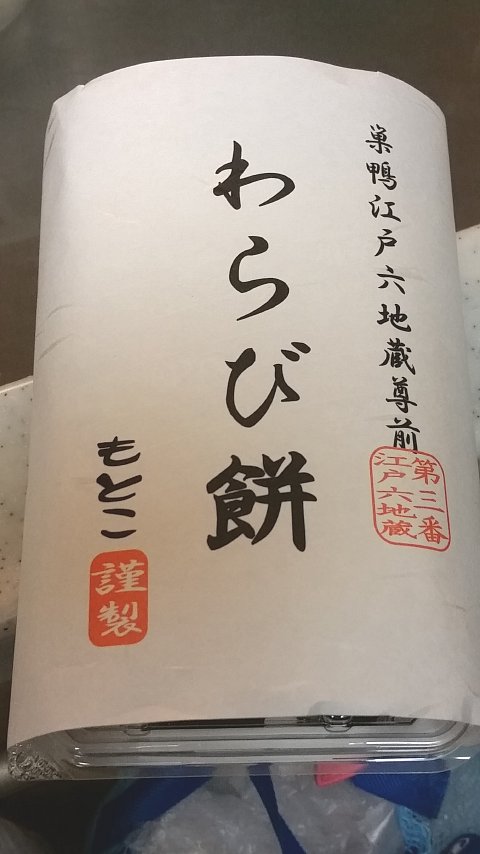 巣鴨江戸六地蔵尊前
第三番
江戸六地蔵
わらび餅
もとこ
謹製